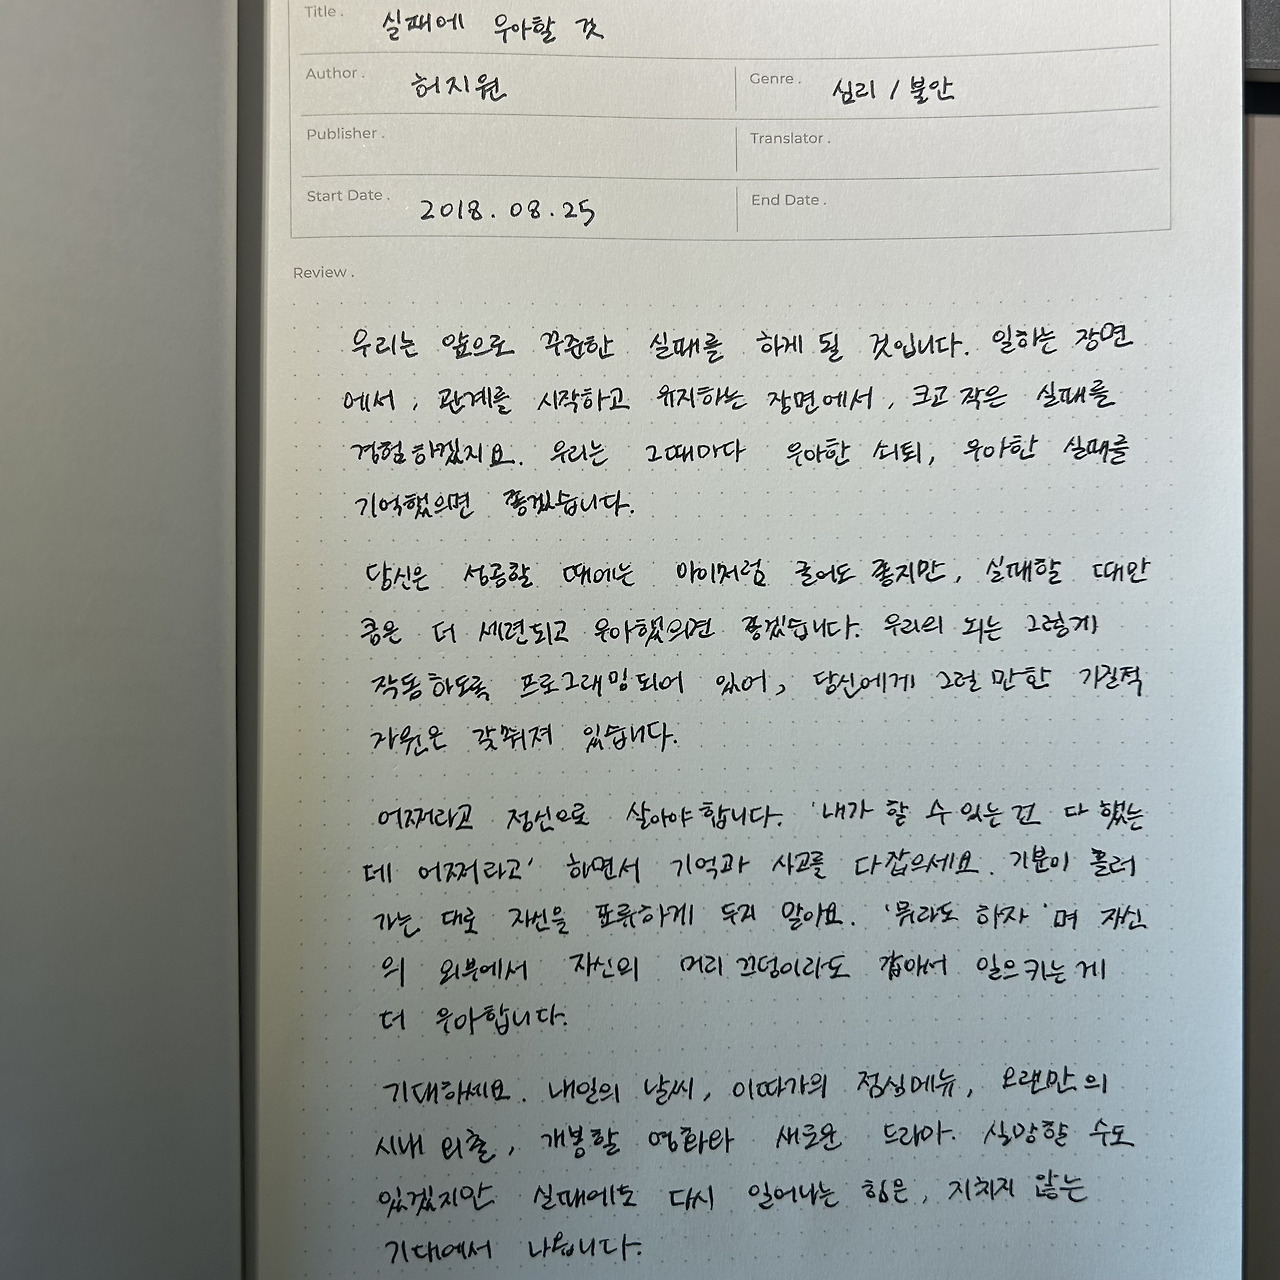 Title .
실패에 우아할 것
Author .
허지원
Genre .
심리 / 불안
Publisher .
Translator .
Start Date .
2018. 08. 25
End Date .
Review .
우리는 앞으로 꾸준한 실패를 하게 될 것입니다. 일하는 장면
에서, 관계를 시작하고 유지하는 장면에서, 크고 작은 실패를
경험하겠지요. 우리는 그때마다 우아한 쇠퇴, 우아한 실패를
기억했으면 좋겠습니다.
당신은 성공할 때에는 아이처럼 굴어도 좋지만, 실패할 때만
큼은 더 세련되고 우아했으면 좋겠습니다. 우리의 뇌는 그렇게
작동하도록 프로그래밍되어 있어, 당신에게 그럴 만한 기질적
자원은 갖춰져 있습니다.
어쩌라고 정신으로 살아야 합니다. '내가 할 수 있는 건 다 했는
데 어쩌라고' 하면서 기억과 사고를 다잡으세요. 기분이 흘러
가는 대로 자신을 표류하게 두지 말아요. '뭐라도 하자'며 자신
의 외부에서 자신의 머리 끄덩이라도 잡아서 일으키는 게
더 우아합니다.
기대하세요. 내일의 날씨, 이따가의 점심메뉴, 오랜만의
시내 외출, 개봉할 영화와 새로운 드라마. 실망할 수도
있겠지만 실패에도 다시 일어나는 힘은, 지치지 않는
기대에서 나옵니다.